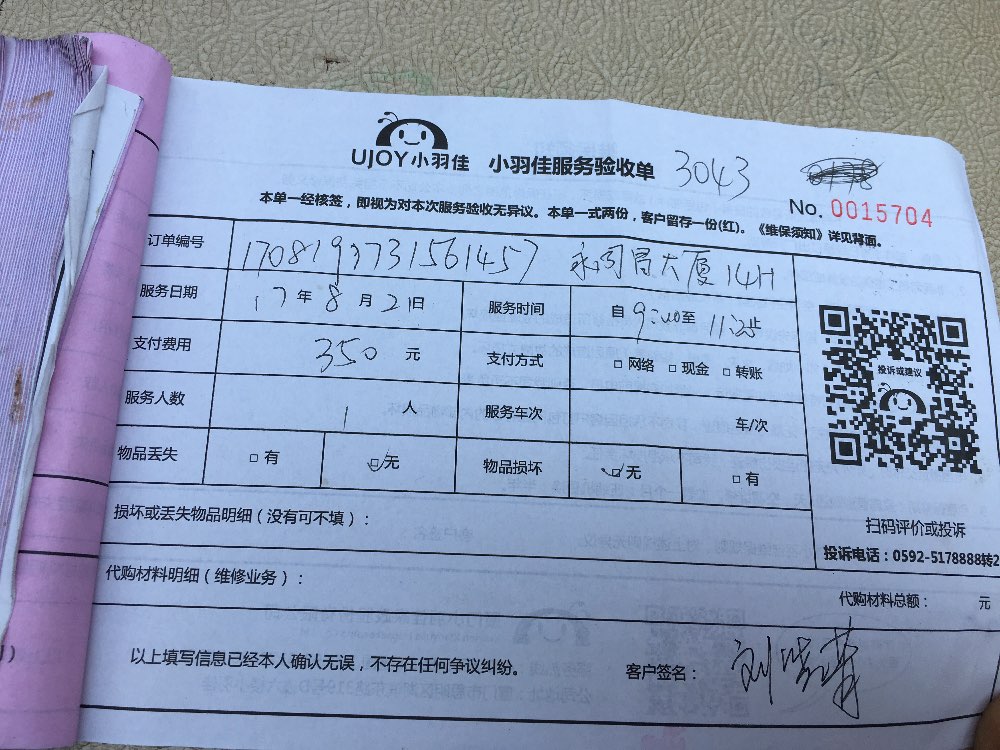 UJOY小羽佳 小羽佳服务验收单 3043
No. 0015704
本单一经核签，即视为对本次服务验收无异议。本单一式两份，客户留存一份(红)。《维保须知》详见背面。
订单编号 17081993731561457 永同昌大厦14H
服务日期 17年8月21日 服务时间 自9:40至11:25止
支付费用 350元 支付方式 □网络 □现金 □转账
服务人数 1人 服务车次 车/次
物品丢失 □有 ☑无 物品损坏 ☑无 □有
投诉或建议
扫码评价或投诉
投诉电话：0592-5178888转2
损坏或丢失物品明细（没有可不填）：
代购材料明细（维修业务）：
代购材料总额： 元
以上填写信息已经本人确认无误，不存在任何争议纠纷。 客户签名：